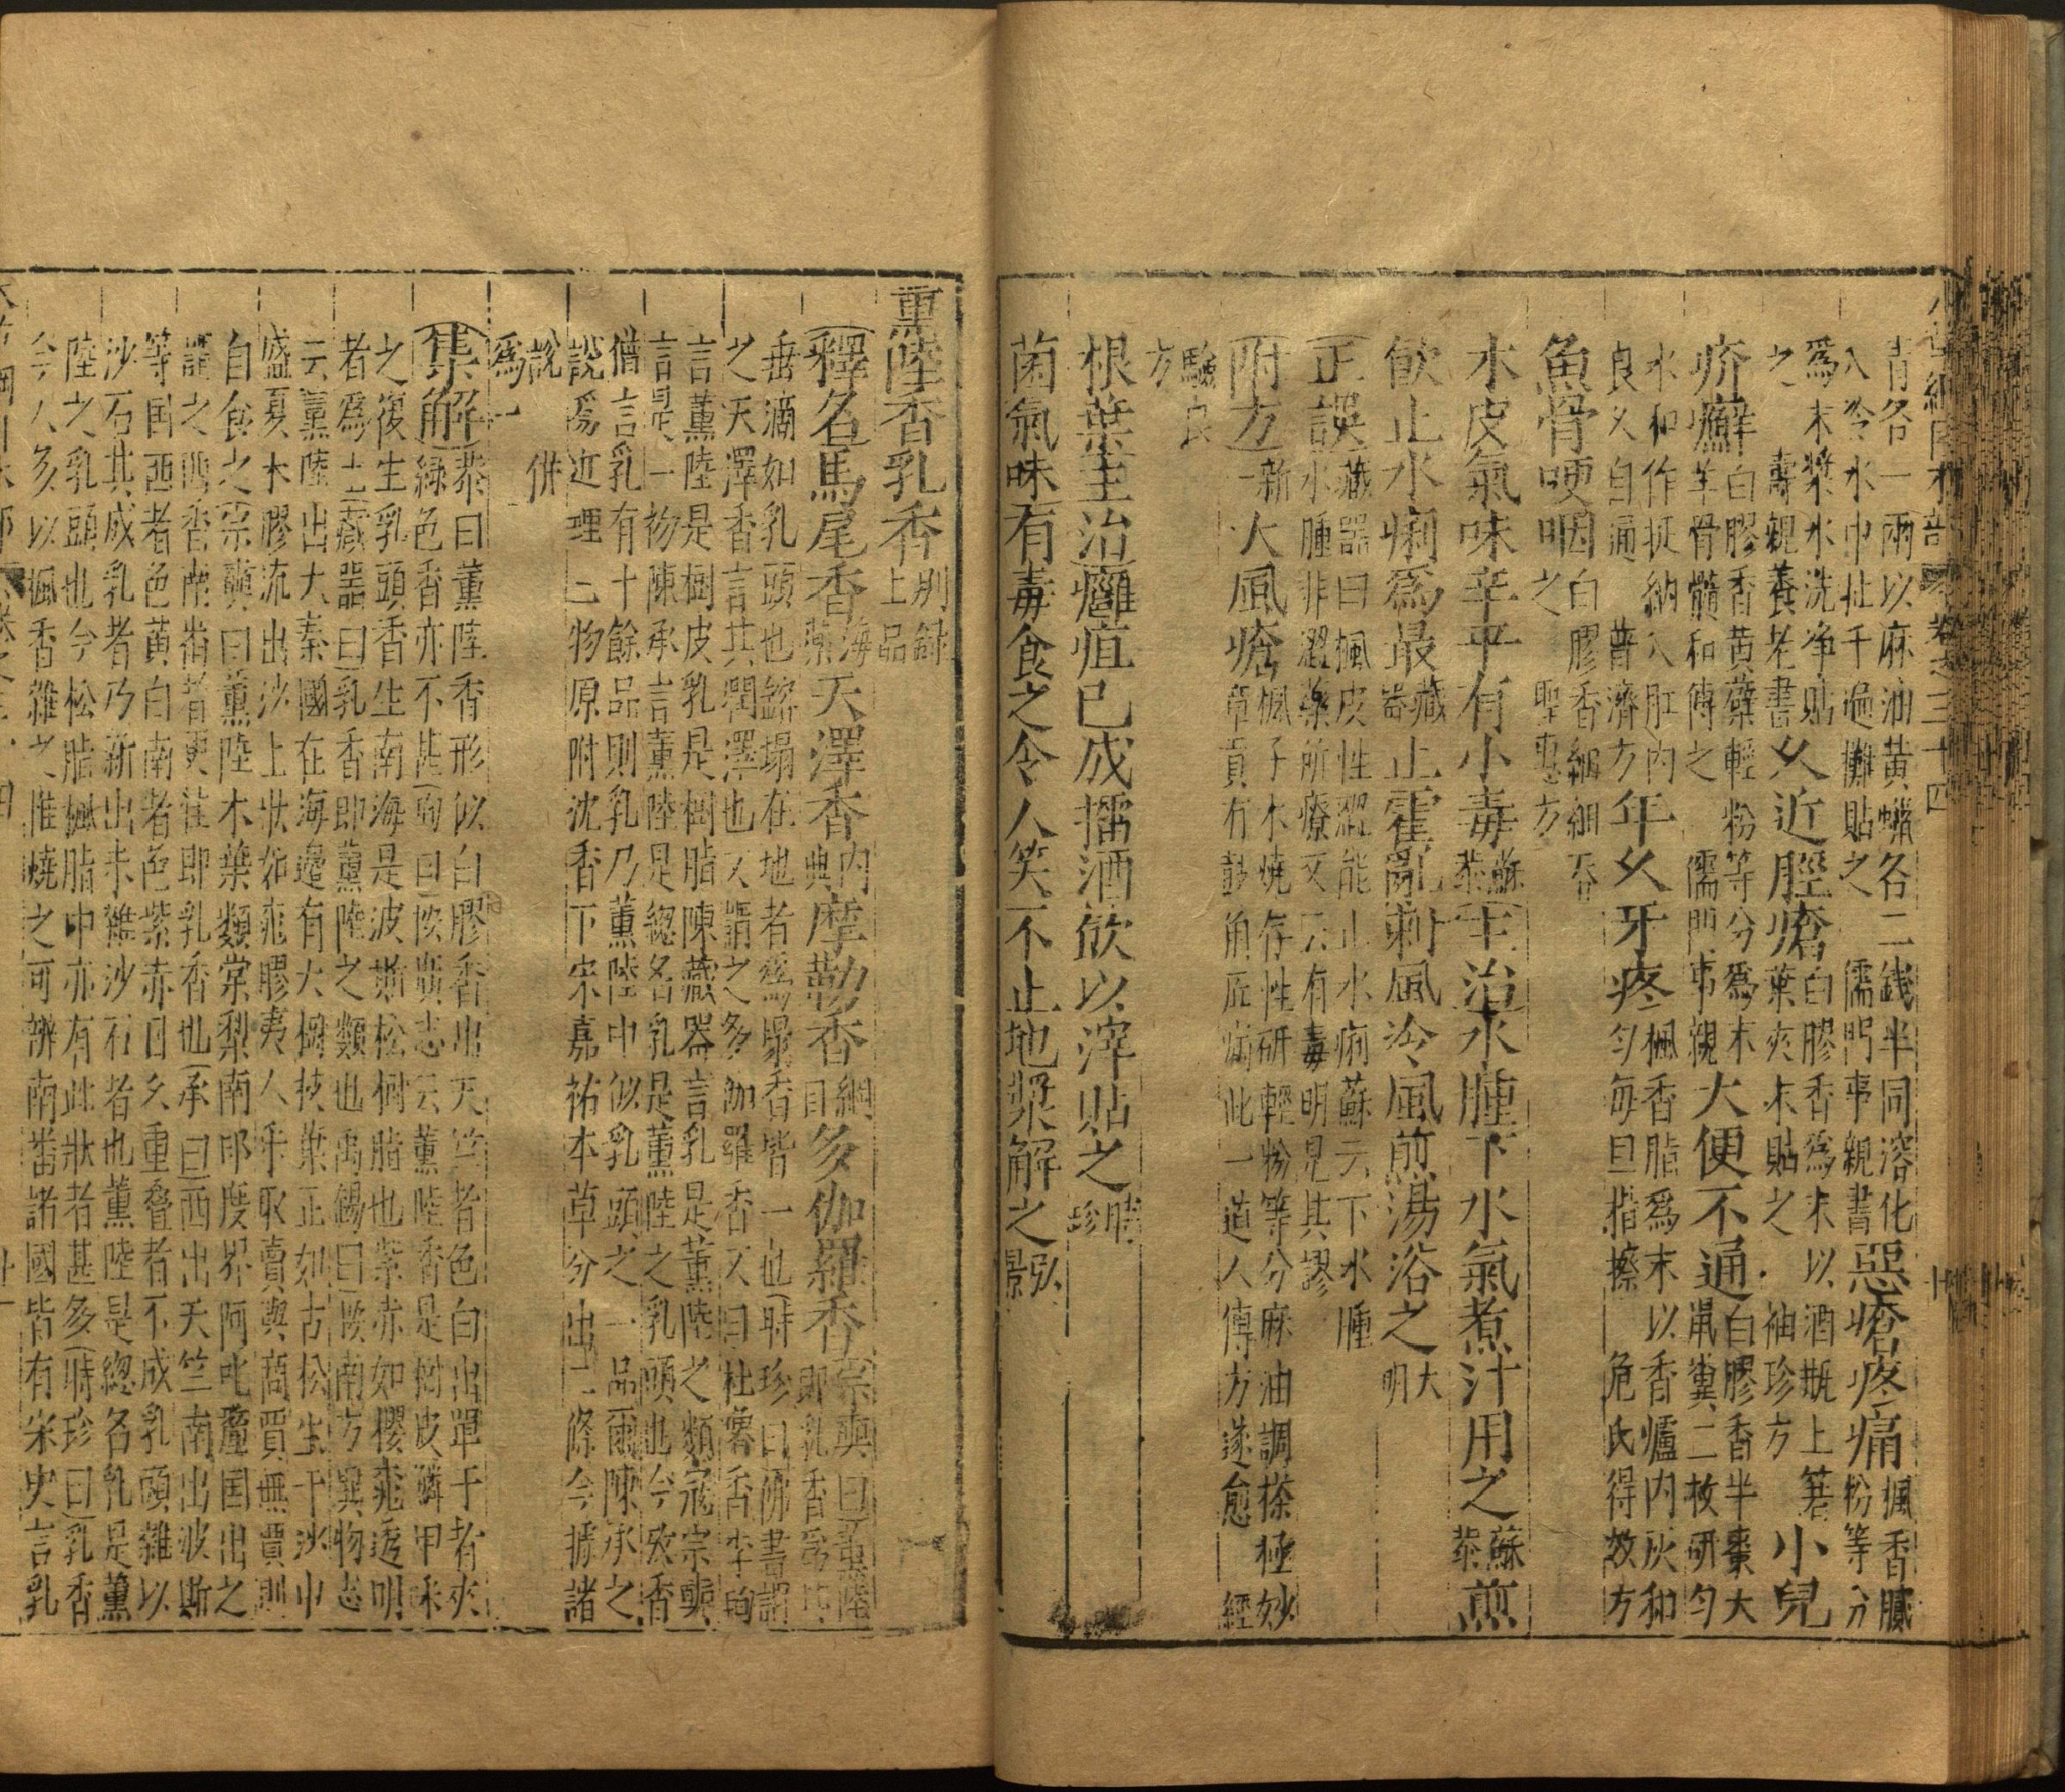 本草綱目木部 卷之三十四 十
青各一兩以麻油黃蠟各二錢半同溶化
入冷水中扯千遍攤貼之 儒門事親書
惡瘡疼痛
楓香膩
粉等分
爲末漿水洗凈貼
之 壽親養老書
久近脛瘡
白膠香爲末以酒瓶上箬
葉夾末貼之 袖珍方
小兒
疥癬
白膠香黃蘗輕粉等分爲末
羊骨髓和傅之 儒門事親
大便不通
白膠香半棗大
鼠糞二枚研勻
水和作挺納入肛內
良久自通 普濟方
年久牙疼
楓香脂爲末以香爐內灰和
勻每旦指擦 危氏得效方
魚骨哽咽
白膠香細細吞
之 聖惠方
木皮氣味辛平有小毒
蘇
恭
主治水腫下水氣煮汁用之
蘇
恭
煎
飲止水痢爲最
藏
器
止霍亂刺風冷風煎湯浴之
大
明
正誤
藏器曰楓皮性澀能止水痢蘇云下水腫
水腫非澀藥所療又云有毒明見其謬
附方
新
一
大風瘡
楓子木燒存性研輕粉等分麻油調搽極妙
章貢有鼓角匠病此一道人傳方遂愈 經
驗良
方
根葉主治癰疽已成擂酒飲以滓貼之
時
珍
菌氣味有毒食之令人笑不止地漿解之
弘
景
薰陸香乳香
別錄
上品
釋名馬尾香
海
藥
天澤香
內
典
摩勒香
綱
目
多伽羅香
宗奭曰薰陸
即乳香爲其
垂滴如乳頭也鎔塌在地者爲塌香皆一也時珍曰佛書謂
之天澤香言其潤澤也又謂之多伽羅香又曰杜嚕香李珣
言薰陸是樹皮乳是樹脂陳藏器言乳是薰陸之類寇宗奭
言是一物陳承言薰陸是總名乳是薰陸之乳頭也今攷香
僧言乳有十餘品則乳乃薰陸中似乳頭之一品爾陳承之
說爲近理二物原附沈香下宋嘉祐本草分出二條今據諸
說併
爲一
集解
恭曰薰陸香形似白膠香出天竺者色白出單于者夾
綠色香亦不甚珣曰按廣志云薰陸香是樹皮鱗甲采
之復生乳頭香生南海是波斯松樹脂也紫赤如櫻桃透明
者爲上藏器曰乳香即薰陸之類也禹錫曰按南方異物志
云薰陸出大秦國在海邊有大樹枝葉正如古松生于沙中
盛夏木膠流出沙上狀如桃膠夷人采取賣與商賈無賈則
自食之宗奭曰薰陸木葉類棠梨南印度界阿吒釐国出之
謂之西香南番者更佳即乳香也承曰西出天竺南出波斯
等国西者色黃白南者色紫赤日久重疊者不成乳頭雜以
沙石其成乳者乃新出未雜沙石者也薰陸是總名乳是薰
陸之乳頭也今松脂楓脂中亦有此狀者甚多時珍曰乳香
今人多以楓香雜之惟燒之可辨南番諸國皆有宋史言乳